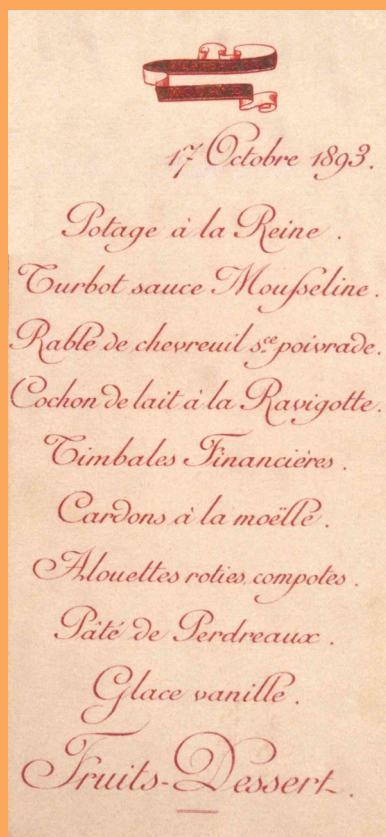 17 Octobre 1893.
Potage à la Reine.
Turbot sauce Mousseline.
Rable de chevreuil sce poivrade.
Cochon de lait à la Ravigotte.
Timbales Financières.
Cardons à la moëlle.
Alouettes roties, compotes.
Pâté de Perdreaux.
Glace vanille.
Fruits-Dessert.